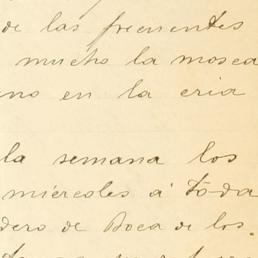 de las frecuentes
mucho la mosca
no en la cria
la semana los
miércoles á To-da
dero de Boca de los.